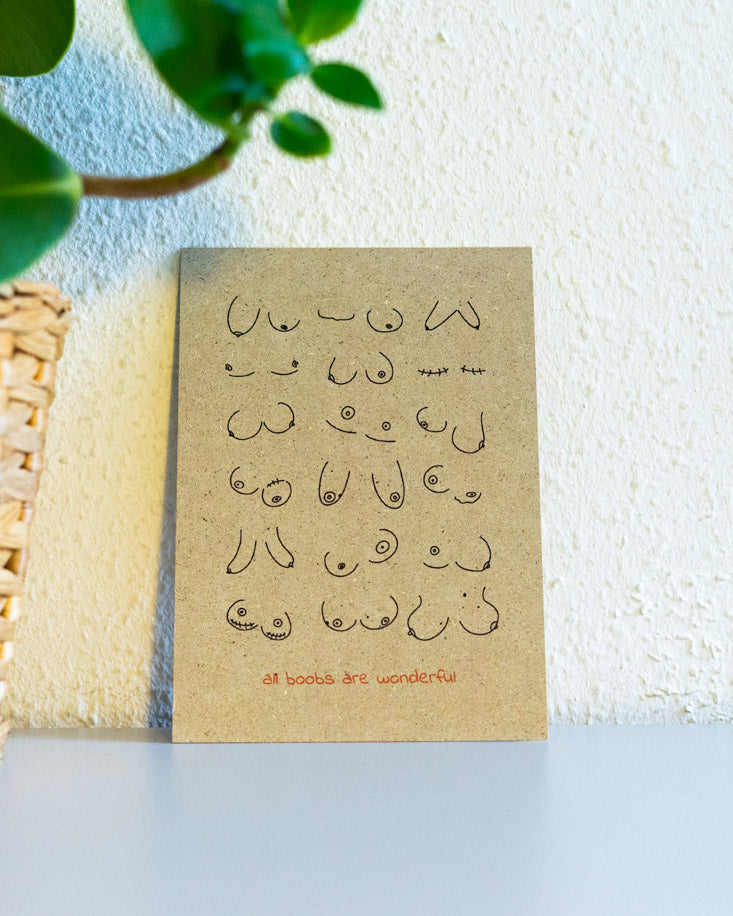 all boobs are wonderful